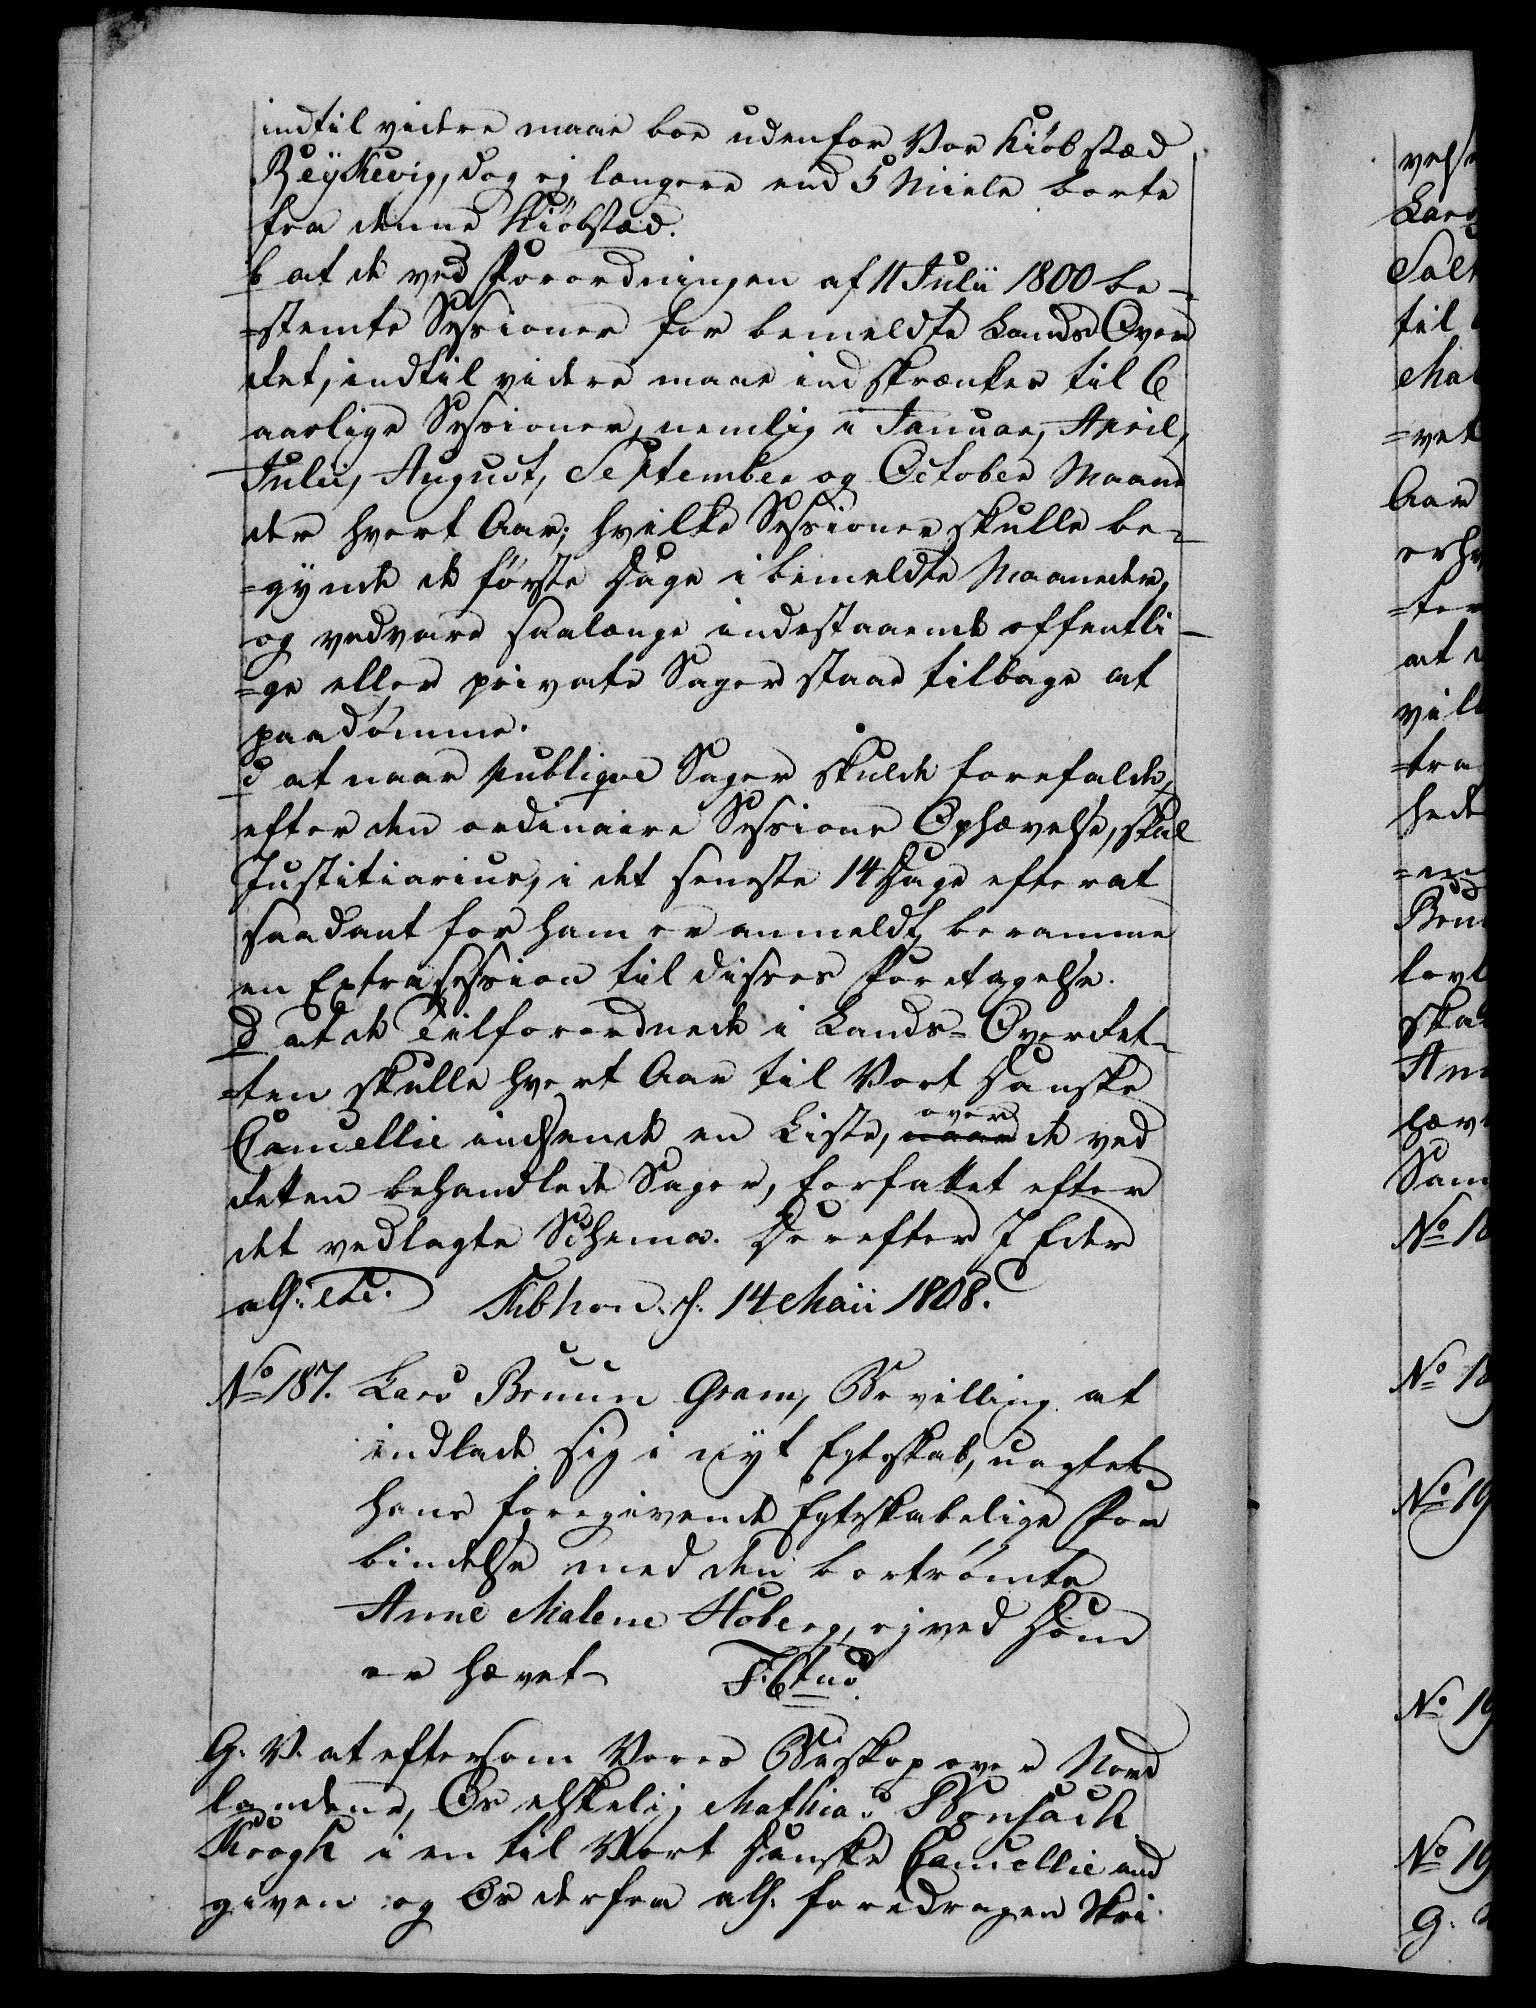 indtil videre maae boe udenfor Vor Kiöbstæd
Reÿkevig, dog ej længere end 5 Miile borte
fra denne Kiöbstæd.
b at de ved Forordningen af 11 Julii 1800 be-
=stemte Sessioner for bemeldte Lands Over
Ret, indtil videre maae indskrænkes til 6
aarlige Sessioner, nemlig i Januar, April,
Julii, August, September og October Maane
der hvert Aar; hvilke Sessioner skulle be-
=gynde de første Dage i bemeldte Maaneder,
og vedvare saalænge indestaaende offentli-
=ge eller private Sager staae tilbage at
paadömme.
c at naar publiqve Sager skulde forefalde,
efter den ordinaire Sessions Ophævelse, skal
Justitiarius, i det seneste 14 Dage efterat
saadant for ham er anmeldt, beramme
en Extrasession til disses Foretagelse.
d at de Tilforordnede i Lands-Overret-
=ten skulle hvert Aar til Vort Danske
Cancellie indsende en Liste, over de ved
Retten behandlede Sager, forfattet efter
det vedlagte Schema. Derefter I Eder
alh: etc. Kibhon. d: 14 Maii 1808.
No 187. Lars Bruun Gram, Bevilling at
indlade sig i nyt Egteskab, uagtet
hans foregivende Egteskabelige For
bindelse med den bortrömte
Anne Malene Hoberg, ej ved Dom
er hævet
G. V. at eftersom Vores Biskop over Nord
landene, Os elskelig Mathias Bonsach
Krogh i en til Vort Danske Cancellie ind
given og Os derfra alh. foredragen Skri
vels
Lars
Salt
til
Ma
=vet
Aar
erhv
=ter
at
vill
=tra
hed
=en
Bru
lovl
ska
Ann
hæv
Sam
No 18
No 18
No 19
No 19
No 19
G.